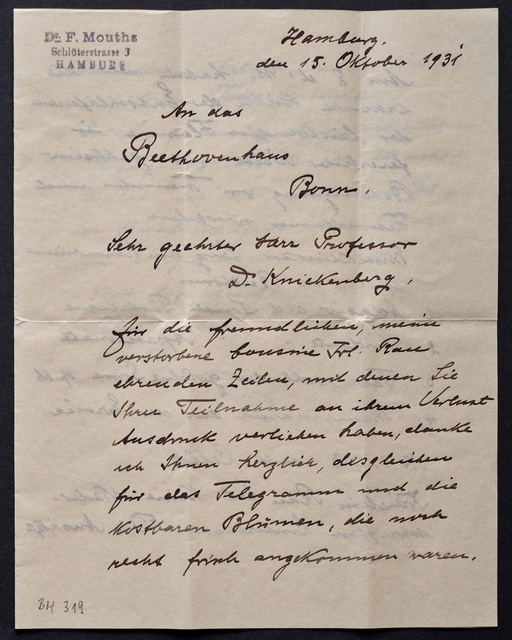 Dr. F. Mouths
Schlüterstrasse 3
HAMBURG
Hamburg,
den 15. Oktober 1931
An das
Beethovenhaus
Bonn.
Sehr geehrter Herr Professor
Dr. Knickenberg,
für die freundlichen, meine
verstorbene Cousine Frl. Rau
ehrenden Zeilen, mit denen Sie
Ihre Teilnahme an ihrem Verlust
Ausdruck verliehen haben, danke
ich Ihnen herzlich, desgleichen
für das Telegramm und die
kostbaren Blumen, die noch
recht frisch angekommen waren.
BH 319